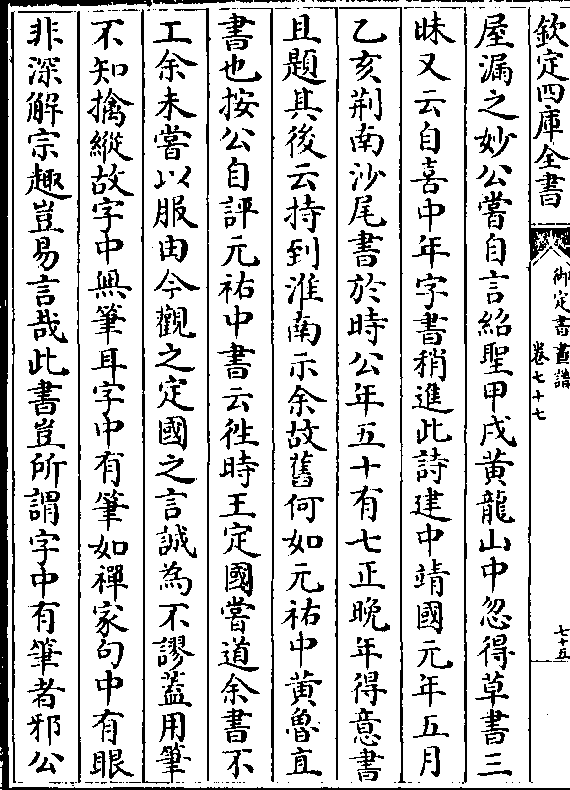 欽定四庫全書
御定書畫譜
卷七十七
七十五
屋漏之妙公嘗自言紹聖甲戌黄龍山中忽得草書三
昧又云自喜中年字書稍進此詩建中靖國元年五月
乙亥荆南沙尾書於時公年五十有七正晚年得意書
且題其後云持到淮南示余故舊何如元祐中黄魯直
書也按公自評元祐中書云徃時王定國嘗道余書不
工余未嘗以服由今觀之定國之言誠為不謬蓋用筆
不知擒縱故字中無筆耳字中有筆如禪家句中有眼
非深解宗趣豈易言哉此書豈所謂字中有筆者邪公